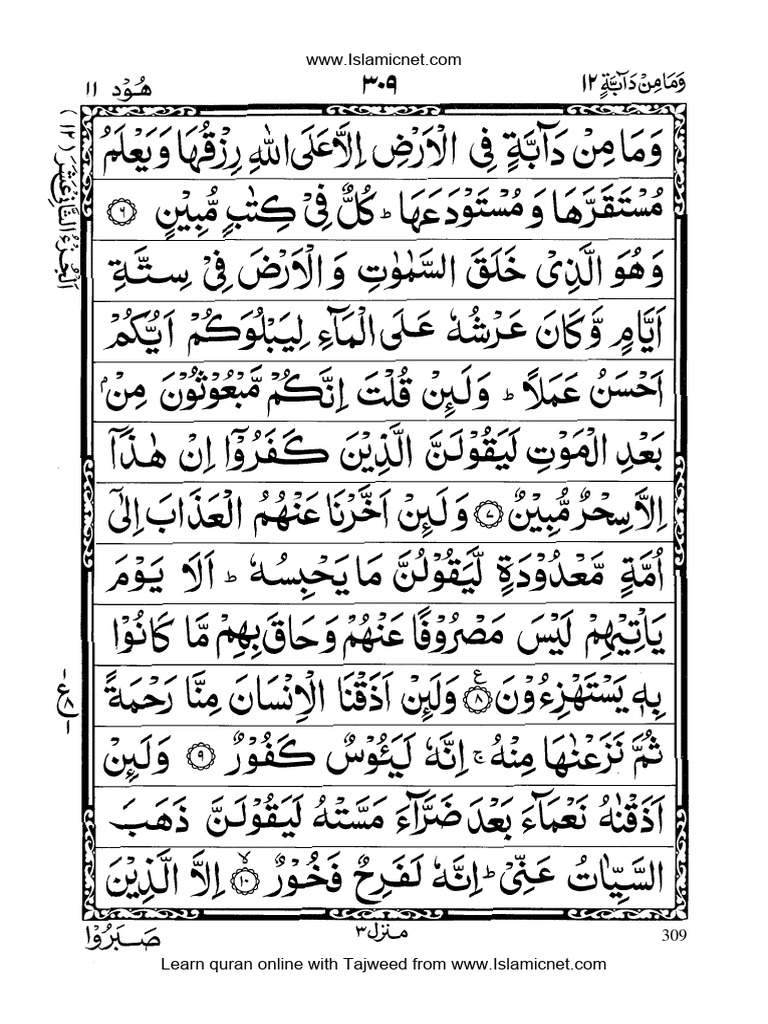 www.Islamicnet.com
وَمَا مِنْ دَآبَّةٍ ١٢
٣٠٩
هُوْد ١١
وَمَا مِنْ دَآبَّةٍ فِى الْاَرْضِ اِلَّا عَلَى اللّٰهِ رِزْقُهَا وَيَعْلَمُ
مُسْتَقَرَّهَا وَمُسْتَوْدَعَهَا ؕ كُلٌّ فِىْ كِتٰبٍ مُّبِيْنٍ ۝٦
وَهُوَ الَّذِىْ خَلَقَ السَّمٰوٰتِ وَالْاَرْضَ فِىْ سِتَّةِ
اَيَّامٍ وَّكَانَ عَرْشُهٗ عَلَى الْمَآءِ لِيَبْلُوَكُمْ اَيُّكُمْ
اَحْسَنُ عَمَلًا ؕ وَلَئِنْ قُلْتَ اِنَّكُمْ مَّبْعُوْثُوْنَ مِنْۢ
بَعْدِ الْمَوْتِ لَيَقُوْلَنَّ الَّذِيْنَ كَفَرُوْۤا اِنْ هٰذَاۤ
اِلَّا سِحْرٌ مُّبِيْنٌ ۝٧ وَلَئِنْ اَخَّرْنَا عَنْهُمُ الْعَذَابَ اِلٰٓى
اُمَّةٍ مَّعْدُوْدَةٍ لَّيَقُوْلُنَّ مَا يَحْبِسُهٗ ؕ اَلَا يَوْمَ
يَاْتِيْهِمْ لَيْسَ مَصْرُوْفًا عَنْهُمْ وَحَاقَ بِهِمْ مَّا كَانُوْا
بِهٖ يَسْتَهْزِءُوْنَ ۝٨ ع وَلَئِنْ اَذَقْنَا الْاِنْسَانَ مِنَّا رَحْمَةً
ثُمَّ نَزَعْنٰهَا مِنْهُ ۚ اِنَّهٗ لَيَئُوْسٌ كَفُوْرٌ ۝٩ وَلَئِنْ
اَذَقْنٰهُ نَعْمَآءَ بَعْدَ ضَرَّآءَ مَسَّتْهُ لَيَقُوْلَنَّ ذَهَبَ
السَّيِّاٰتُ عَنِّىْ ؕ اِنَّهٗ لَفَرِحٌ فَخُوْرٌ ۝١٠ لا اِلَّا الَّذِيْنَ
اَلْجُزْءُ الثَّانِىْ عَشَرَ (١٢)
ع ٨
309
منزل ٣
صَبَرُوْا
Learn quran online with Tajweed from www.Islamicnet.com